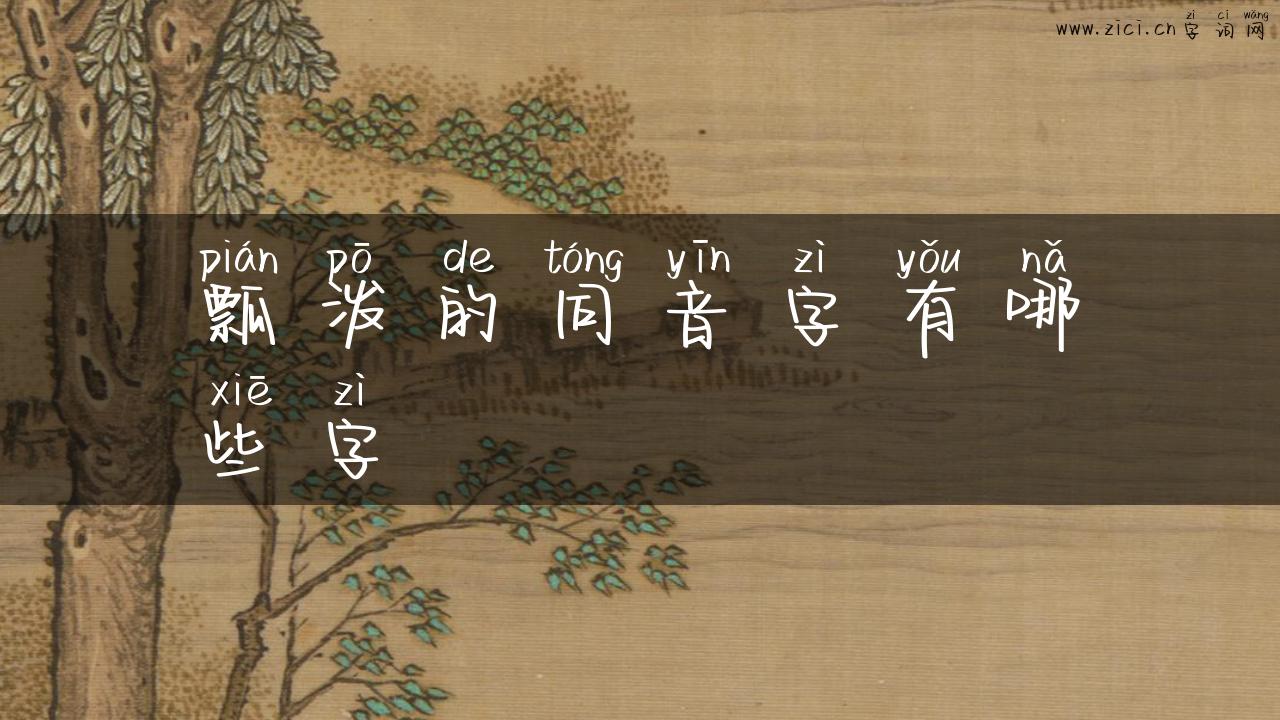 zì cí wǎng
www.zici.cn 字词网
pián pō de tóng yīn zì yǒu nǎ
瓢泼的同音字有哪
xiē zì
些字